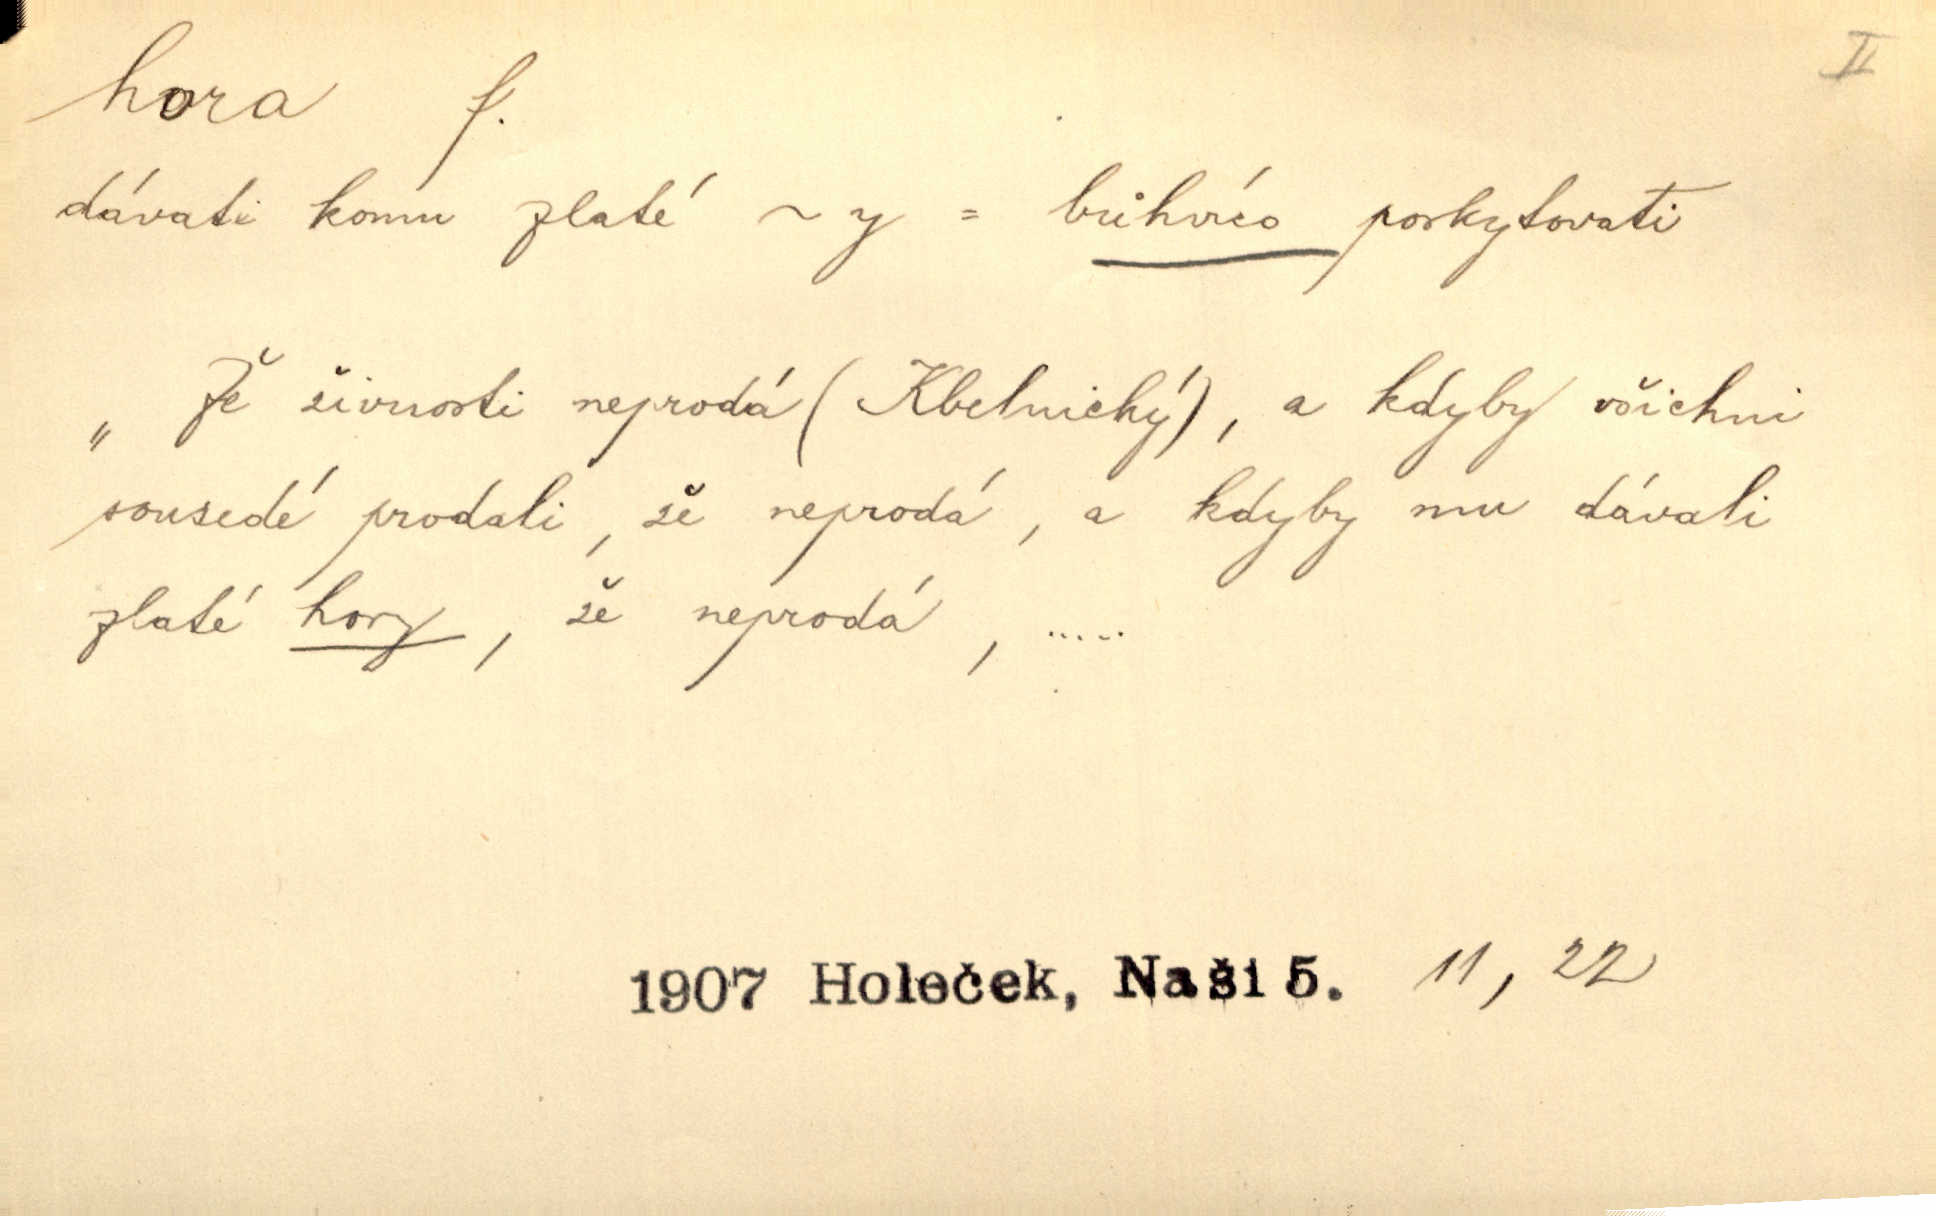 II
hora f.
dávati komu zlaté ~y = bůhvíco poskytovati
„Že živnosti neprodá (Kbelnický), a kdyby všichni
sousedé prodali, že neprodá, a kdyby mu dávali
zlaté hory, že neprodá, .....
1907 Holeček, Naši 5. 11, 22